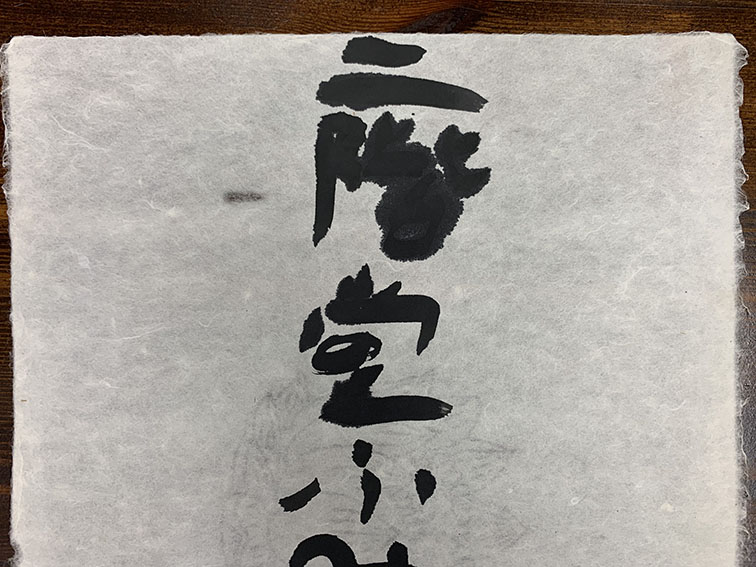 二階堂ふみ